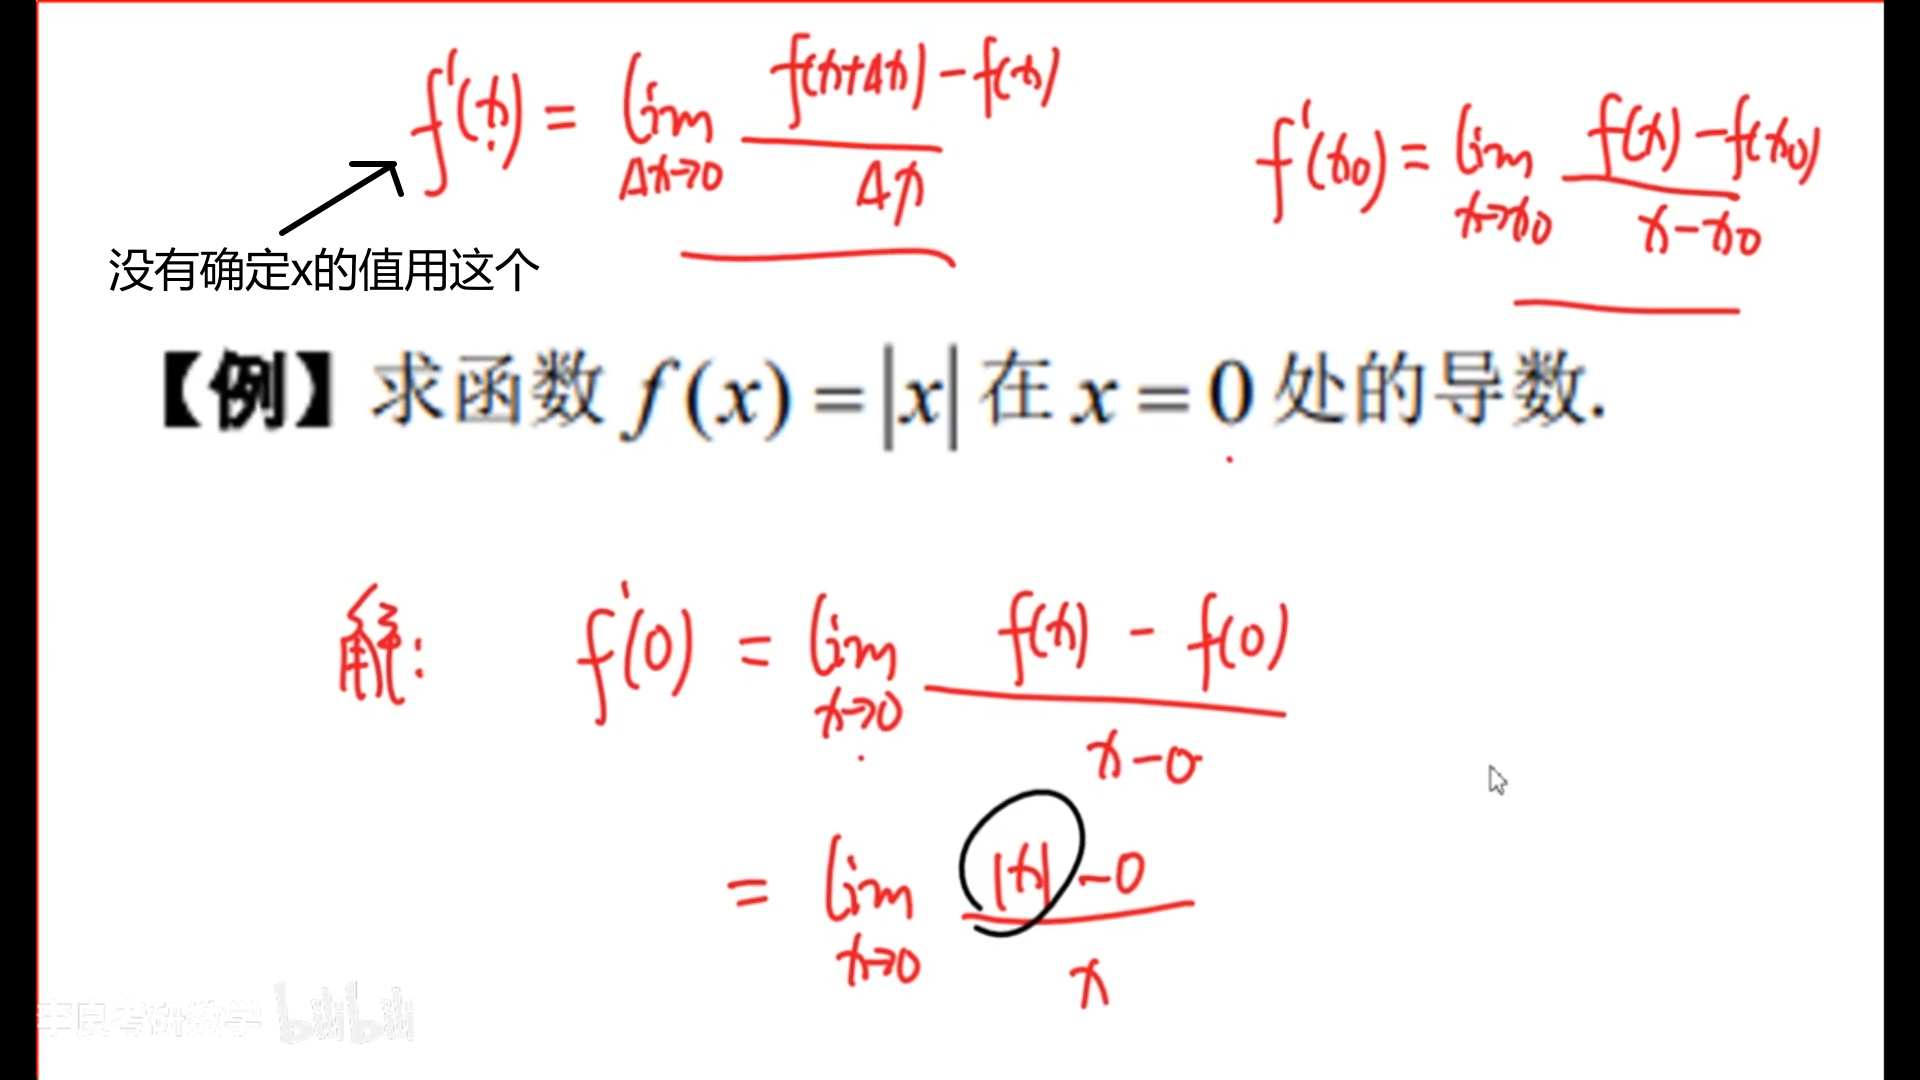 f'(x) = lim Δx→0 f(x+Δx) - f(x) / Δx
f'(x0) = lim x→x0 f(x) - f(x0) / x - x0
没有确定x的值用这个
【例】求函数 f(x) = |x| 在 x = 0 处的导数.
解: f'(0) = lim x→0 f(x) - f(0) / x - 0
= lim x→0 |x| - 0 / x
李良考研数学 bilibili